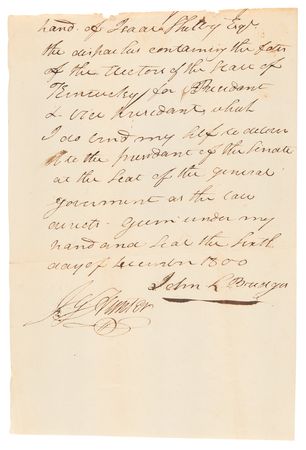 hand of Isaac Shelby Esqr
the dispatches containing the votes
of the electors of the State of
Kentucky for President
& Vice President which
I do bind my self to deliver
to the president of the Senate
at the Seat of the general
government as the law
directs. Given under my
hand and Seal the Sixth
day of December 1800
John L